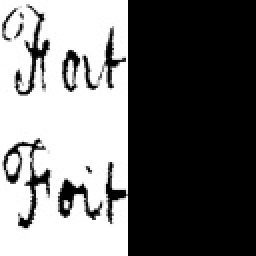 Hort
Foit